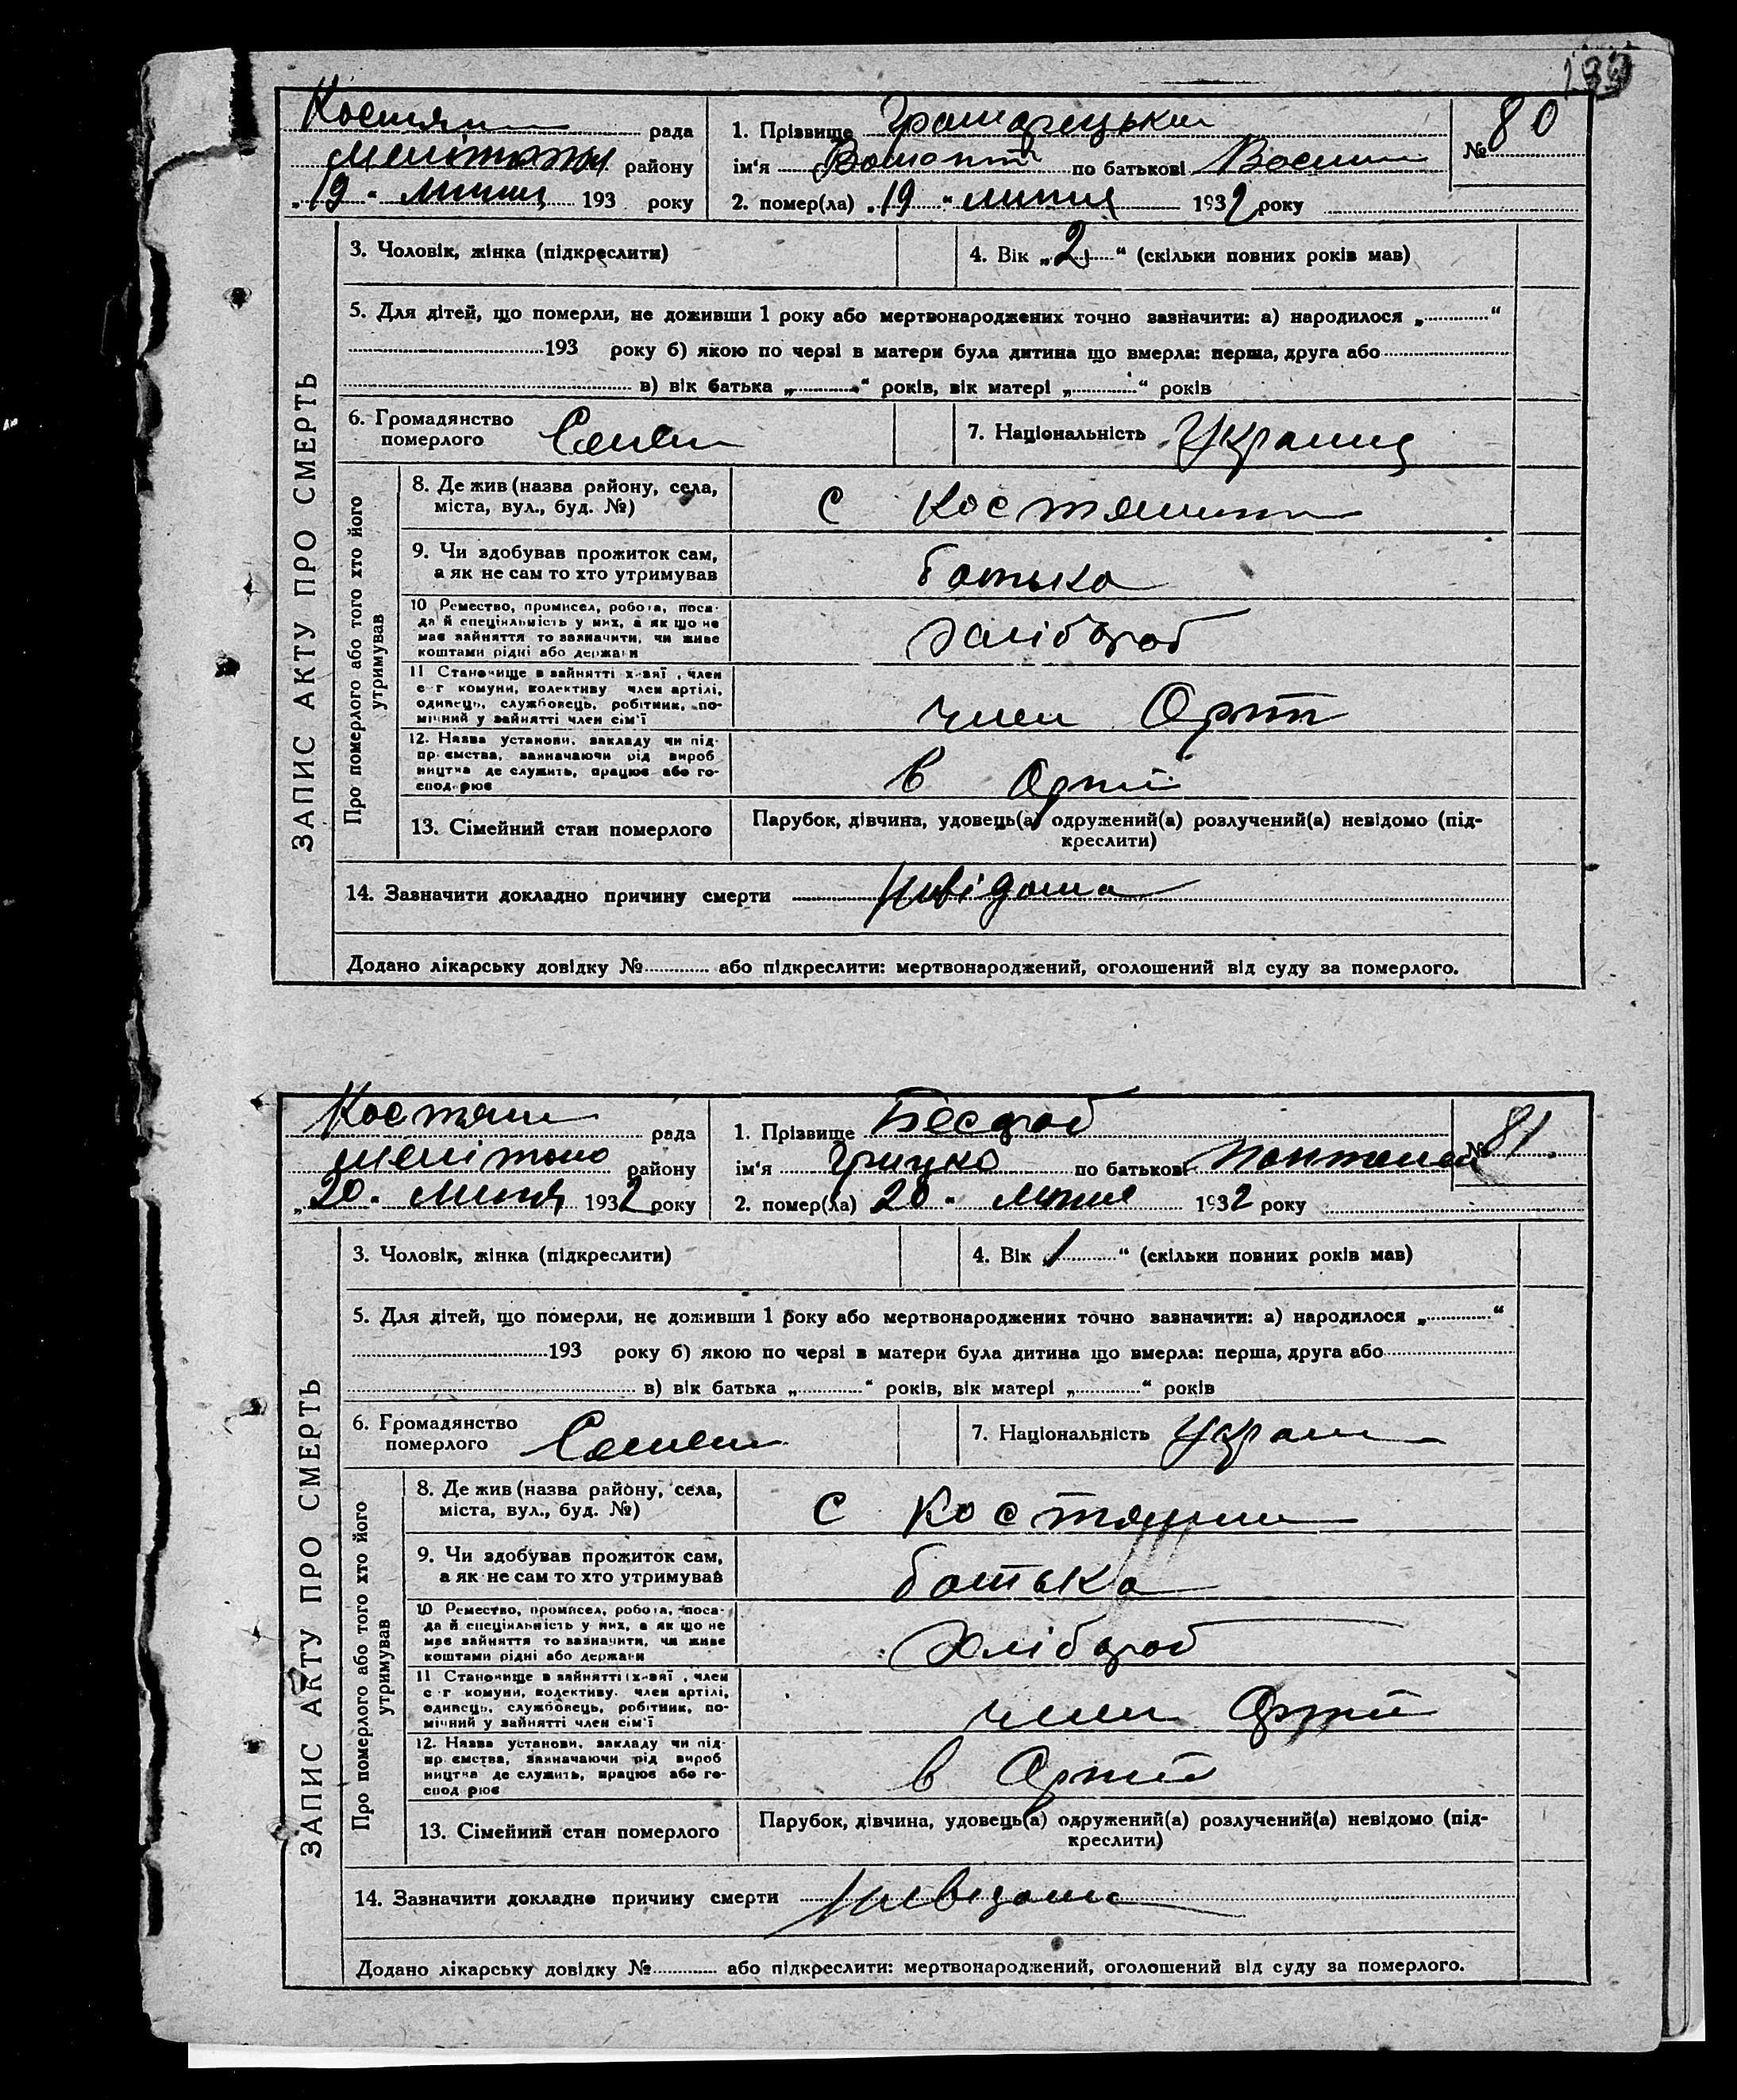 80
рада
1. Прізвище
№
району
ім'я по батькові
„19“ липня 193 року
2. помер(ла) „19“ липня 1932 року
ЗАПИС АКТУ ПРО СМЕРТЬ
3. Чоловік, жінка (підкреслити)
4. Вік „2“ (скільки повних років мав)
5. Для дітей, що померли, не доживши 1 року або мертвонароджених точно зазначити: а) народилося „ “
193 року б) якою по черзі в матери була дитина що вмерла: перша, друга або
в) вік батька „ “ років, вік матері „ “ років
6. Громадянство
померлого
7. Національність
Про померлого або того хто його
утримував
8. Де жив (назва району, села,
міста, вул., буд. №)
с
9. Чи здобував прожиток сам,
а як не сам то хто утримував
батько
10 Ремество, промисел, робота, поса-
да й спеціяльність у них, а як що не
має зайняття то зазначити, чи живе
коштами рідні або держави
хлібороб
11 Становище в зайнятті х-вяї, член
с-г комуни, колективу член артілі,
одинець, службовець, робітник, по-
мічний у зайнятті член сім'ї
член Арт
12. Назва установи, закладу чи під-
пр-ємства, зазначаючи рід вироб
ництва де служить, працює або го-
спод-рює
в Арті
13. Сімейний стан померлого
Парубок, дівчина, удовець(а) одружений(а) розлучений(а) невідомо (під-
креслити)
14. Зазначити докладно причину смерти невідома
Додано лікарську довідку № або підкреслити: мертвонароджений, оголошений від суду за померлого.
рада
1. Прізвище
№ 81
району
ім'я Грицко по батькові
„20“ липня 1932 року
2. помер(ла) 20 “ липня 1932 року
ЗАПИС АКТУ ПРО СМЕРТЬ
3. Чоловік, жінка (підкреслити)
4. Вік 1 “ (скільки повних років мав)
5. Для дітей, що померли, не доживши 1 року або мертвонароджених точно зазначити: а) народилося „ “
193 року б) якою по черзі в матери була дитина що вмерла: перша, друга або
в) вік батька „ “ років, вік матері „ “ років
6. Громадянство
померлого
7. Національність
Про померлого або того хто його
утримував
8. Де жив (назва району, села,
міста, вул., буд. №)
с
9. Чи здобував прожиток сам,
а як не сам то хто утримував
батько
10 Ремество, промисел, робота, поса-
да й спеціяльність у них, а як що не
має зайняття то зазначити, чи живе
коштами рідні або держави
хлібороб
11 Становище в зайнятті х-вяї, член
с-г комуни, колективу, член артілі,
одинець, службовець, робітник, по-
мічний у зайнятті член сім'ї
член Арті
12. Назва установи, закладу чи під-
пр-ємства, зазначаючи рід вироб
ництва де служить, працює або го-
спод-рює
в Арті
13. Сімейний стан померлого
Парубок, дівчина, удовець(а) одружений(а) розлучений(а) невідомо (під-
креслити)
14. Зазначити докладно причину смерти невідома
Додано лікарську довідку № або підкреслити: мертвонароджений, оголошений від суду за померлого.